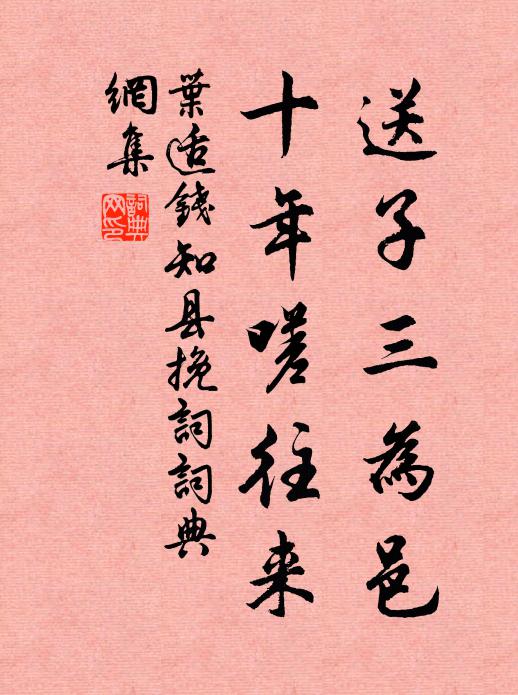 送子三為邑
十年嗟往来
葉适錢知县挽詞詞典
網集
詞典
网印